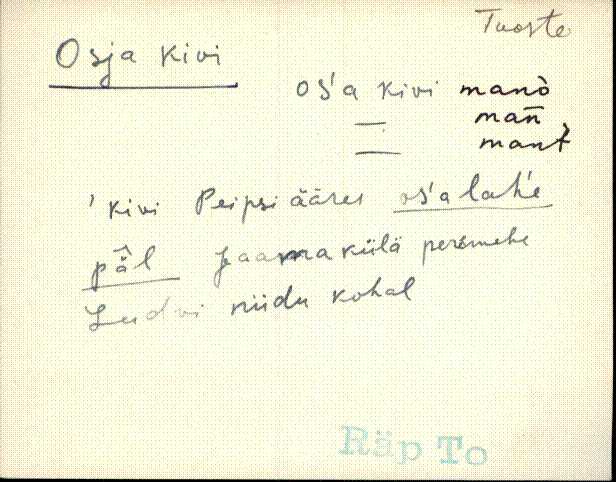 Tuoste
Osja kivi
os'a kivi manò
— man̄
— mant̀
' kivi Peipsi ääres os'a lah'e
pä̂l Jaama külä peremehe
Ludvi niidu kohal
Räp To